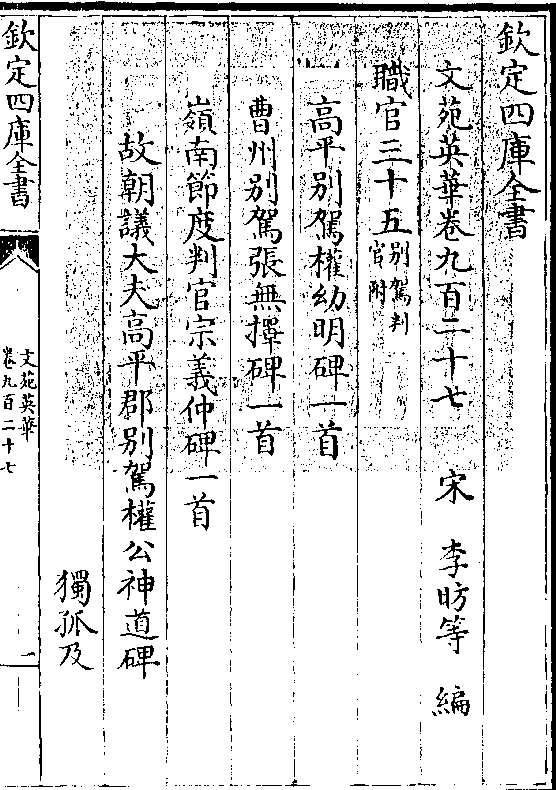 欽定四庫全書
文苑英華卷九百二十七　宋　李昉等　編
職官三十五別駕判官附
高平別駕權幼明碑一首
曹州別駕張無擇碑一首
嶺南節度判官宗義仲碑一首
故朝議大夫高平郡別駕權公神道碑
獨孤及
欽定四庫全書
文苑英華
卷九百二十七
一